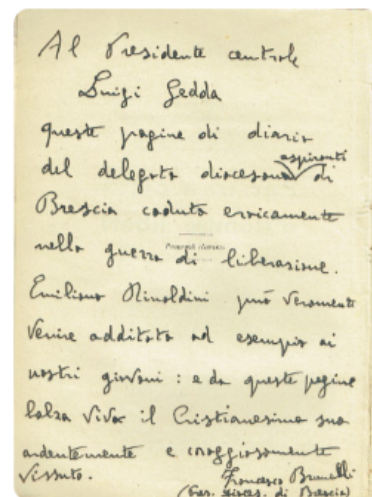 Al Presidente centrale
Luigi Gedda
queste pagine di diario
del delegato diocesano aspiranti di
Brescia caduto eroicamente
nella guerra di liberazione.
Emiliano Rinaldini può veramente
venire additato ad esempio ai
nostri giovani: e da queste pagine
balza viva il Cristianesimo suo
ardentemente e coraggiosamente
vissuto.
Francesco Brunelli
di Brescia)